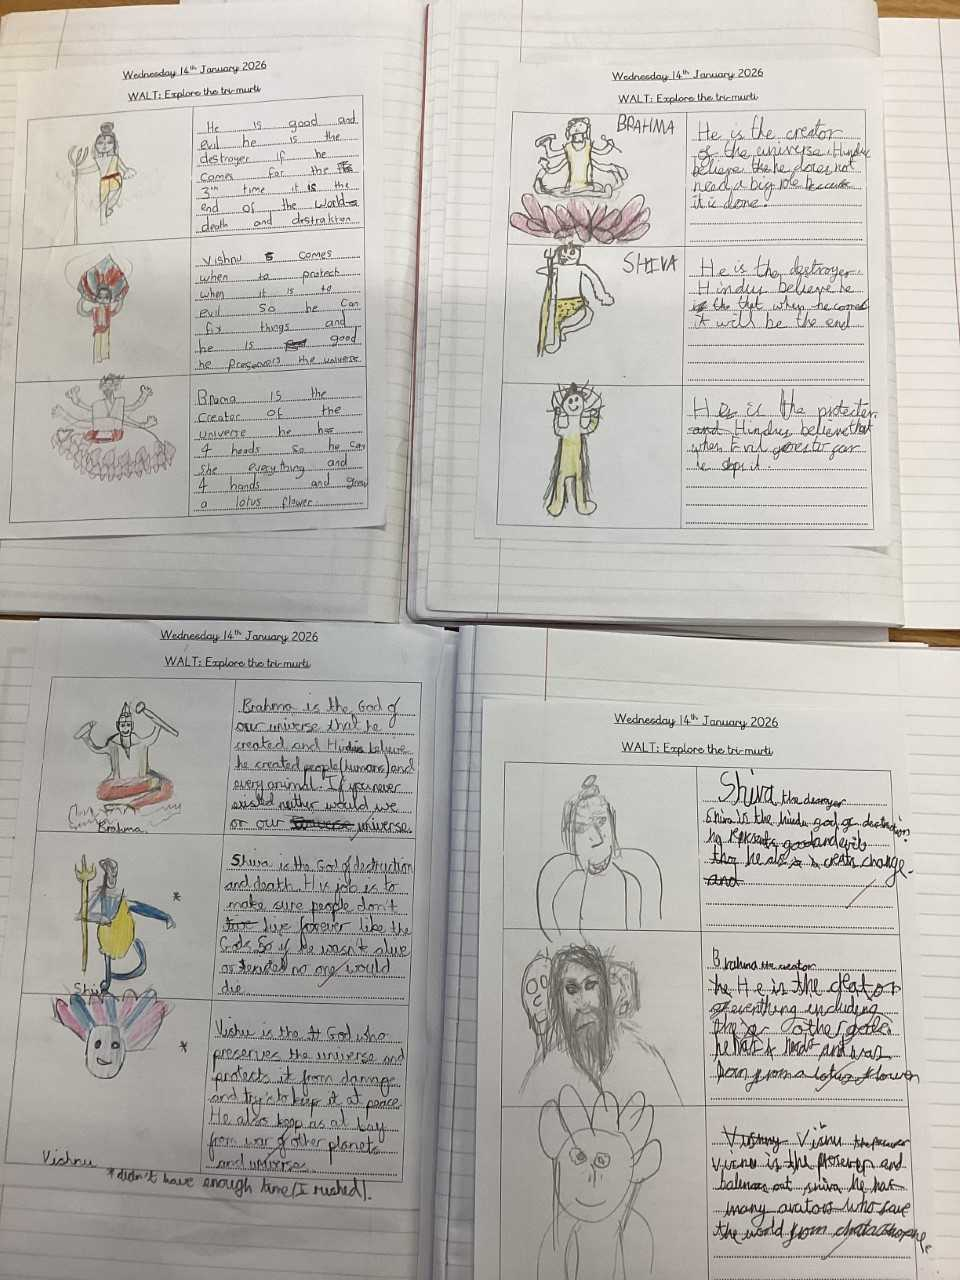 Wednesday 14th January 2026
WALT: Explore the tri-murti
He is good and
evil he is the
destroyer if he
comes for the
3rd time it is the
end of the world
death and destraktion
Vishnu comes
when to protect
when it is to
evil so he can
fix things and
he is good
he preservers the universe
Brama is the
creator of the
universe he has
4 heads so he can
she everything and
4 hands and
a lotus flower.
Wednesday 14th January 2026
WALT: Explore the tri-murti
BRAHMA
He is the creator
of the universe. Hindus
believe he does not
need a big role because
it is done.
SHIVA
He is the destroyer.
Hindus believe he
is the that when he comes
it will be the end
He is the protecter
and Hindus believe that
when Evil goes to far
he stops it.
Wednesday 14th January 2026
WALT: Explore the tri-murti
Brahma.
Brahma is the God of
our universe that he
created and Hindus believe
he created people (humans) and
every animal. If you never
existed neither would we
or our universe universe.
Shiva
*
Shiva is the God of destruction
and death. His job is to
make sure people don't
live live forever like the
Gods. So if he wasn't alive
or no one would
die.
Vishnu
*
Vishu is the God who
preserves the universe and
protects it from damage
and try's to keep it at peace.
He also keep as at bay
from war of other planets
and universe.
*didn't have enough time (I rushed).
Wednesday 14th January 2026
WALT: Explore the tri-murti
Shiva the
Shiva is the hindu god of destruction
he represents good and evil
he als creats change.
and
Brahma the creator
he He is the creator
of everything including
the other gods
he has heads and was
born from a lotus flower
Vishny Vishu the
Vishnu is the preserver and
balences out shiva he has
many avatars who save
the world from